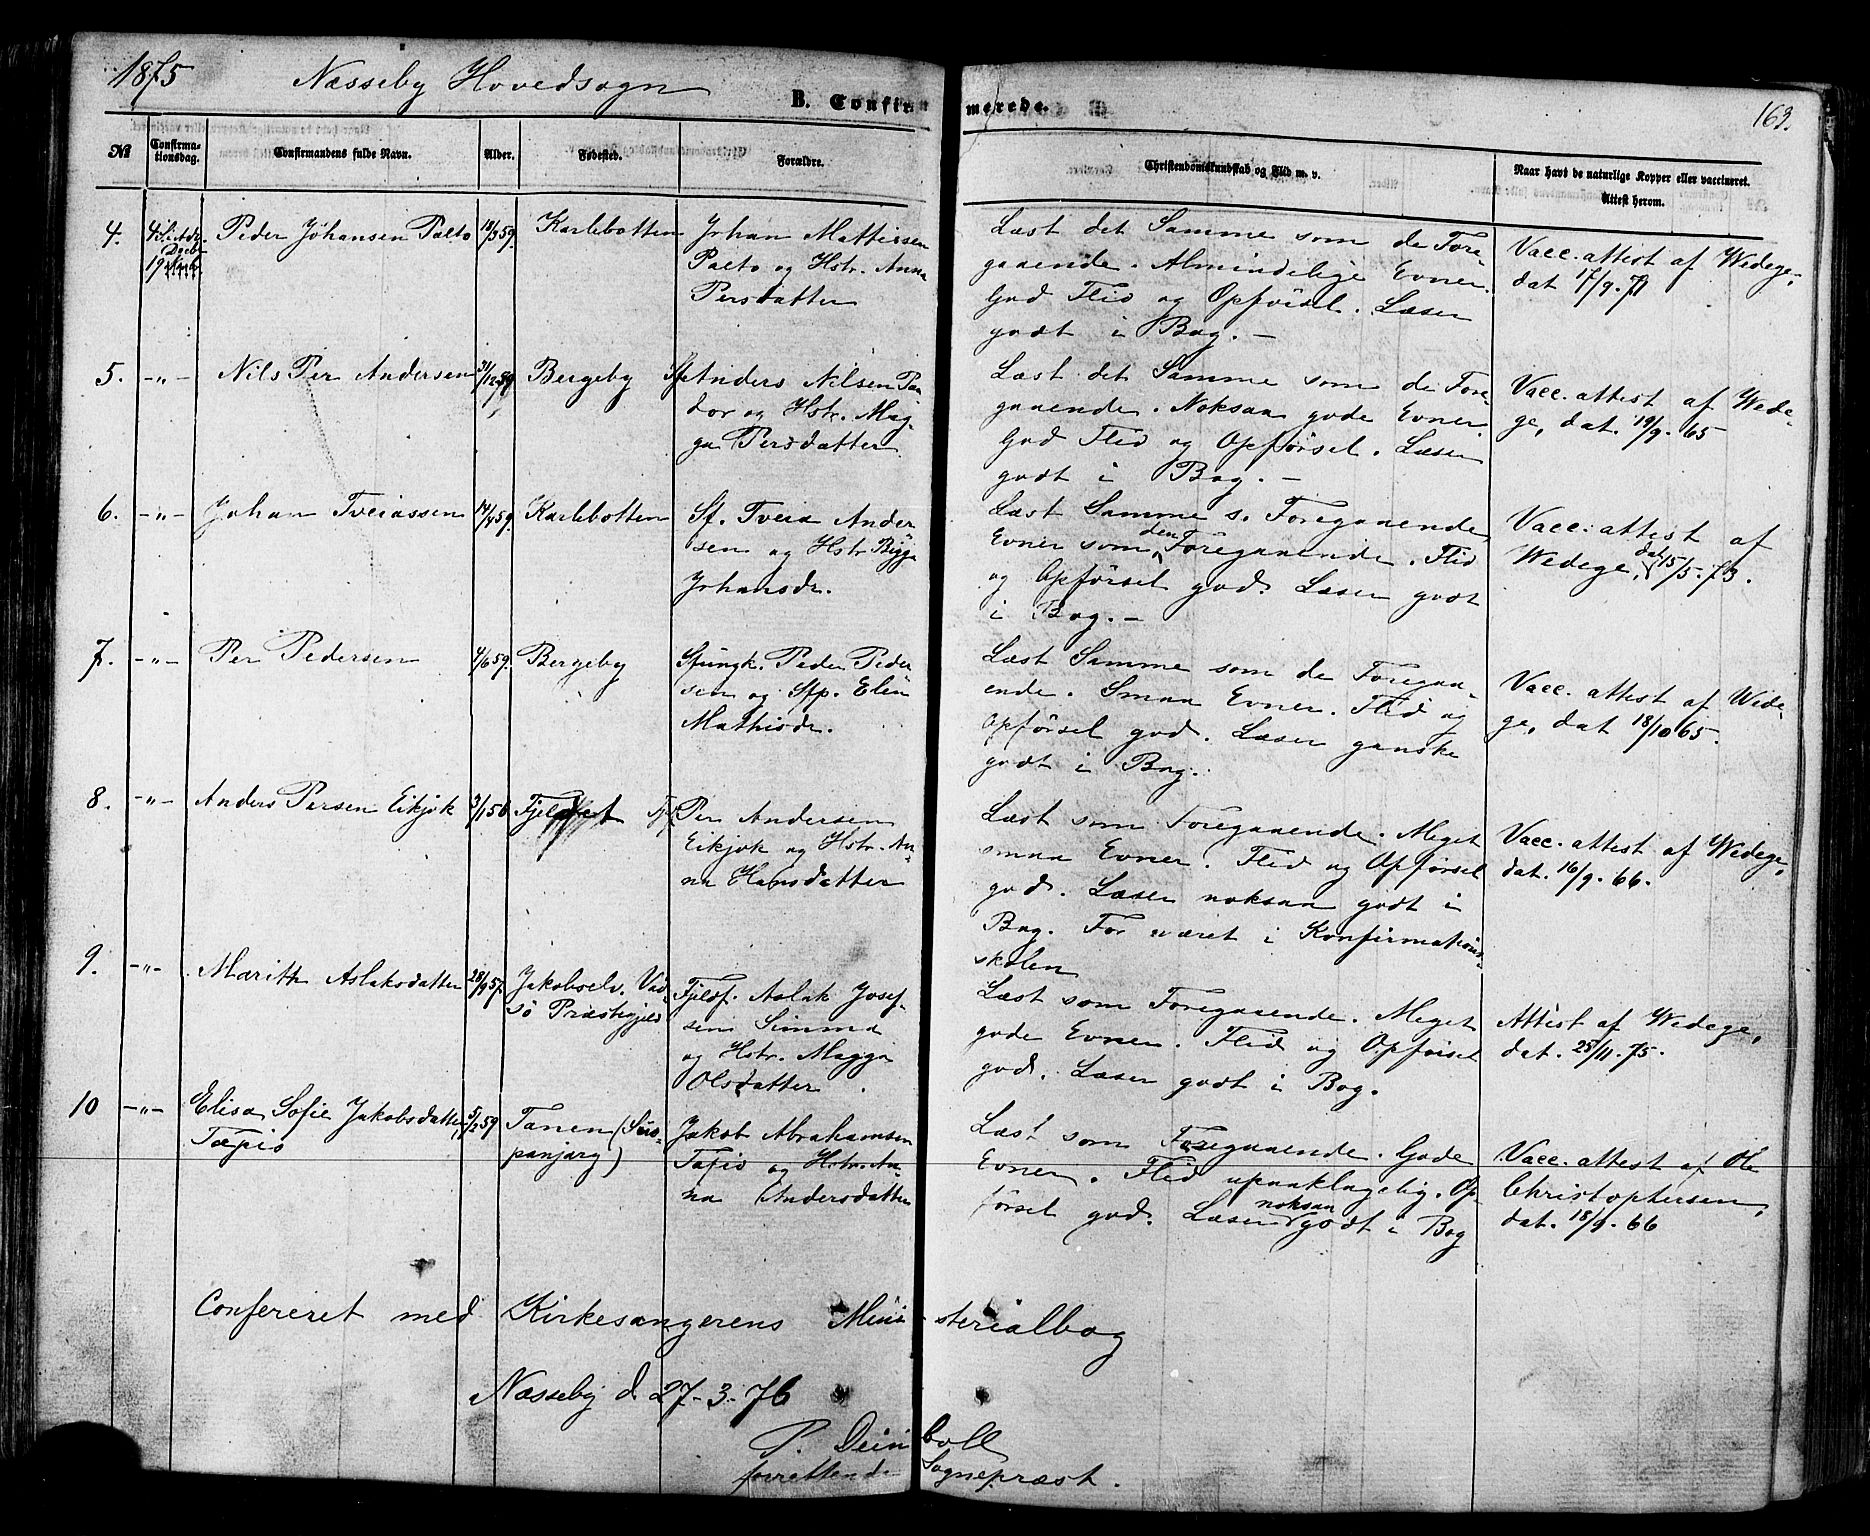 1875 Næsseby Hovedsogn
B. Confirmerede.
163.
№
Confirmationsdag.
Confirmandens fulde Navn.
Alder.
Fødested.
Forældre.
Christendomskundskab og Flid m. v.
Naar havt de naturlige Kopper eller vaccineret.
Attest herom.
4.
4 S. i Adv.
19 Decb.
Peder Johansen Palto
Karlebotten
Johan Mathisen
Palto og Hstr. Anna
Persdatter
Læst det Samme som de Fore-
gaaende. Almindelige Evner.
God Flid og Opførsel. Læser
godt i Bog. –
Vacc. attest af Wedege,
dat 17/9. 71
5. –„–
Nils Per Andersen
31/12 59
Bergeby
Anders Nilsen Pa-
dor og Hstr. Mag-
ga Persdatter
Læst det Samme som de Fore-
gaaende. Noksaa gode Evner.
God Flid og Opførsel. Læser
godt i Bog. –
Vacc. attest af Wede-
ge, dat. 19/9. 65
6. –„–
Johan Tveiassen
14/8 59.
Karlebotten
Sf. Tveia Ander
sen og Hstr Bigga
Johansdr.
Læst Samme s. Foregaaende
Evner som den Foregaaende. Flid
og Opførsel god. Læser godt
i Bog. –
Vacc. attest af
Wedege, dat 15/5. 73.
7. –„–
Per Pedersen
4/6 59.
Bergeby
Sfungk. Peder Peder
sen og Sfp. Elen
Mathisdr.
Læst Samme som de Foregaa-
ende. Smaa Evner. Flid og
Opførsel god. Læser ganske
godt i Bog.
Vacc. attest af Wede-
ge, dat 18/10 65.
8. –„–
Anders Persen Eikjok
3/1 56
Per Andersen
Eikjok og Hstr. An-
na Hansdatter
Læst som Foregaaende. Meget
smaa Evner. Flid og Opførsel
god. Læser noksaa godt i
Bog. Før været i Konfirmations-
skolen
Vacc. attest af Wedege,
dat. 16/9. 66.
9. –„–
Marith Aslaksdatter
28/9 57.
Jakobselv. Vad-
sö Præstegjeld
Fjeldf. Aslak Josef-
sen Simma
og Hstr. Magga
Olsdatter.
Læst som Foregaaende. Meget
gode Evner. Flid og Opførsel
god. Læser godt i Bog.
Attest af Wedege,
dat. 25/11. 75.
10 –„–
Elisa Sofie Jakobsdatter
Tapio
5/2 59
Tanen (Sus-
panjarg)
Jakob Abrahamsen
Tapio og Hstr. An-
na Andersdatter
Læst som Foregaaende. Gode
Evner. Flid upaaklagelig. Op-
førsel god. Læser noksaa godt i Bog
Vacc. attest af Ole
Christophersen,
dat. 18/9. 66
Confereret med Kirkesangerens Ministerialbog
Næsseby d 27-3-76
P. Deinboll
forrettende Sognepræst.